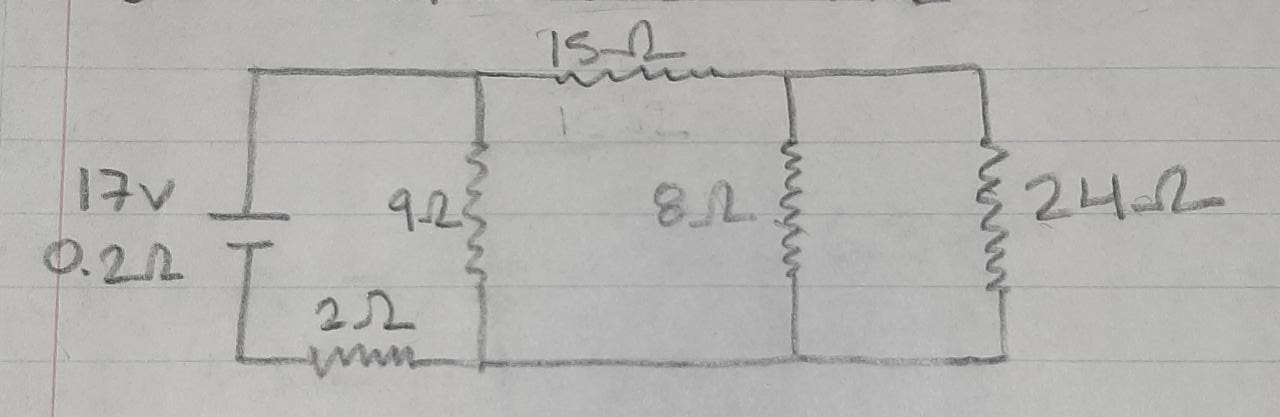 15Ω
17v
0.2Ω
9Ω
8Ω
24Ω
2Ω